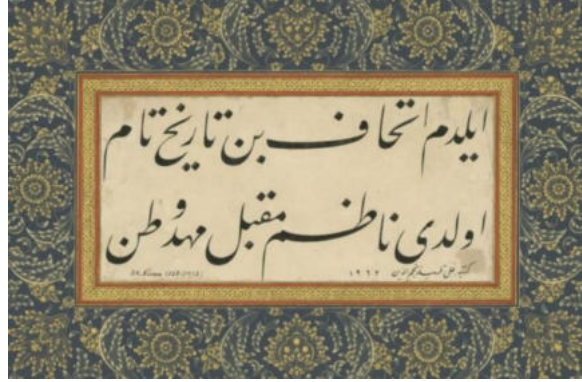 ايلدم اتحاف بن تاريخ تام
اولدى ناظم مقبل مهد وطن
١٩٦٢